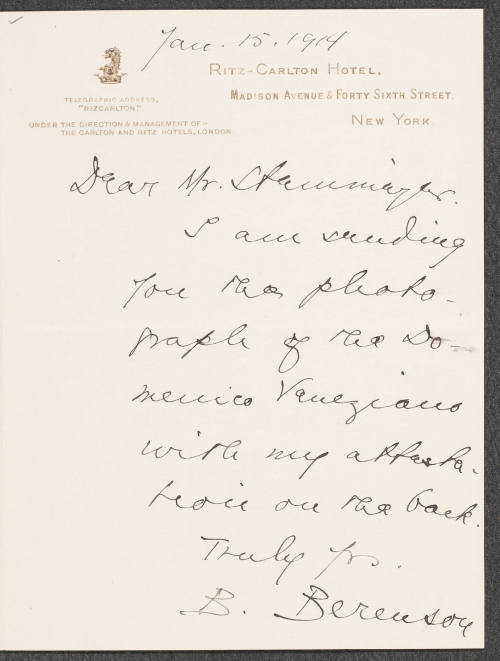 Jan. 15. 1914
RITZ-CARLTON HOTEL,
MADISON AVENUE & FORTY SIXTH STREET.
NEW YORK
TELEGRAPHIC ADDRESS,
"RITZCARLTON."
UNDER THE DIRECTION & MANAGEMENT OF:-
THE CARLTON AND RITZ HOTELS, LONDON.
Dear Mr.
I am sending
you the photo-
graph of the Do-
menico Veneziano
with my attesta-
tion on the back.
Truly yrs.
B. Berenson